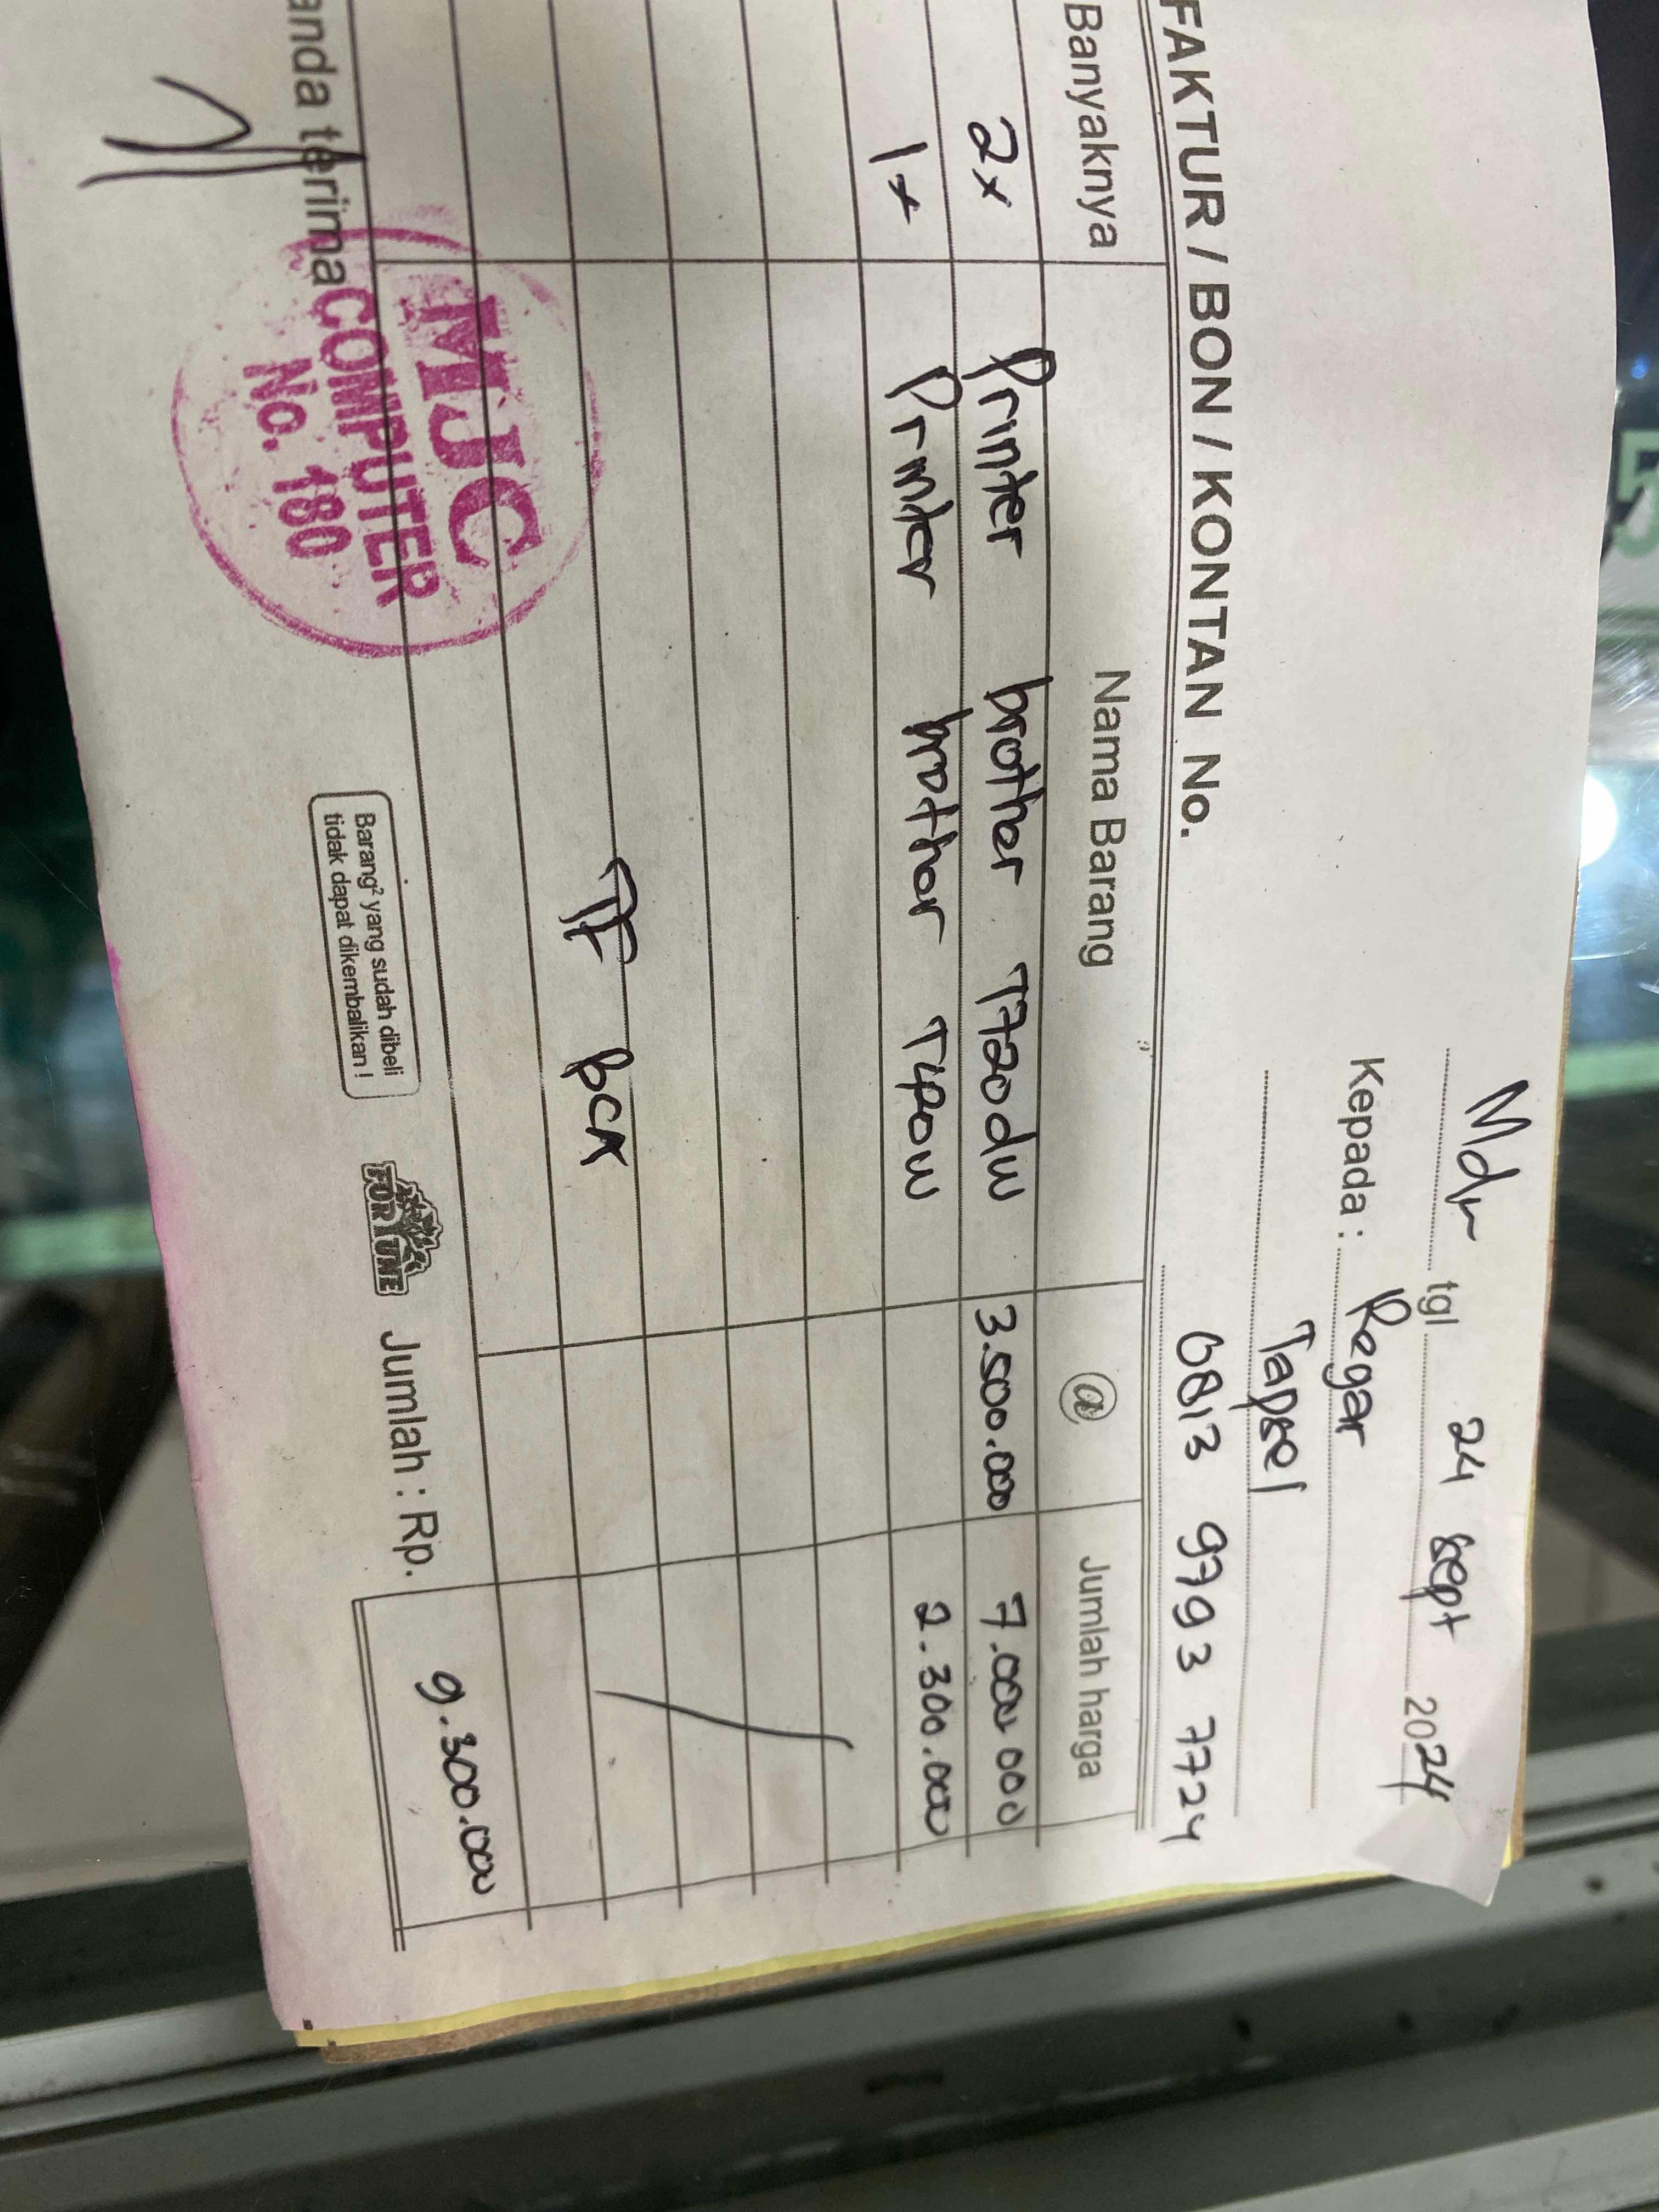 Mdn tgl 24 Sept 2024
Kepada : Regar
Tapsel
0813 9793 7724
FAKTUR / BON / KONTAN No.
Banyaknya Nama Barang @ Jumlah harga
2x Printer brother T720dw 3.500.000 7.000.000
1x Printer brother T420w 2.300.000
TF BCA
anda terima
MJC
COMPUTER
No. 180
Barang² yang sudah dibeli
tidak dapat dikembalikan !
FORTUNE
Jumlah : Rp. 9.300.000